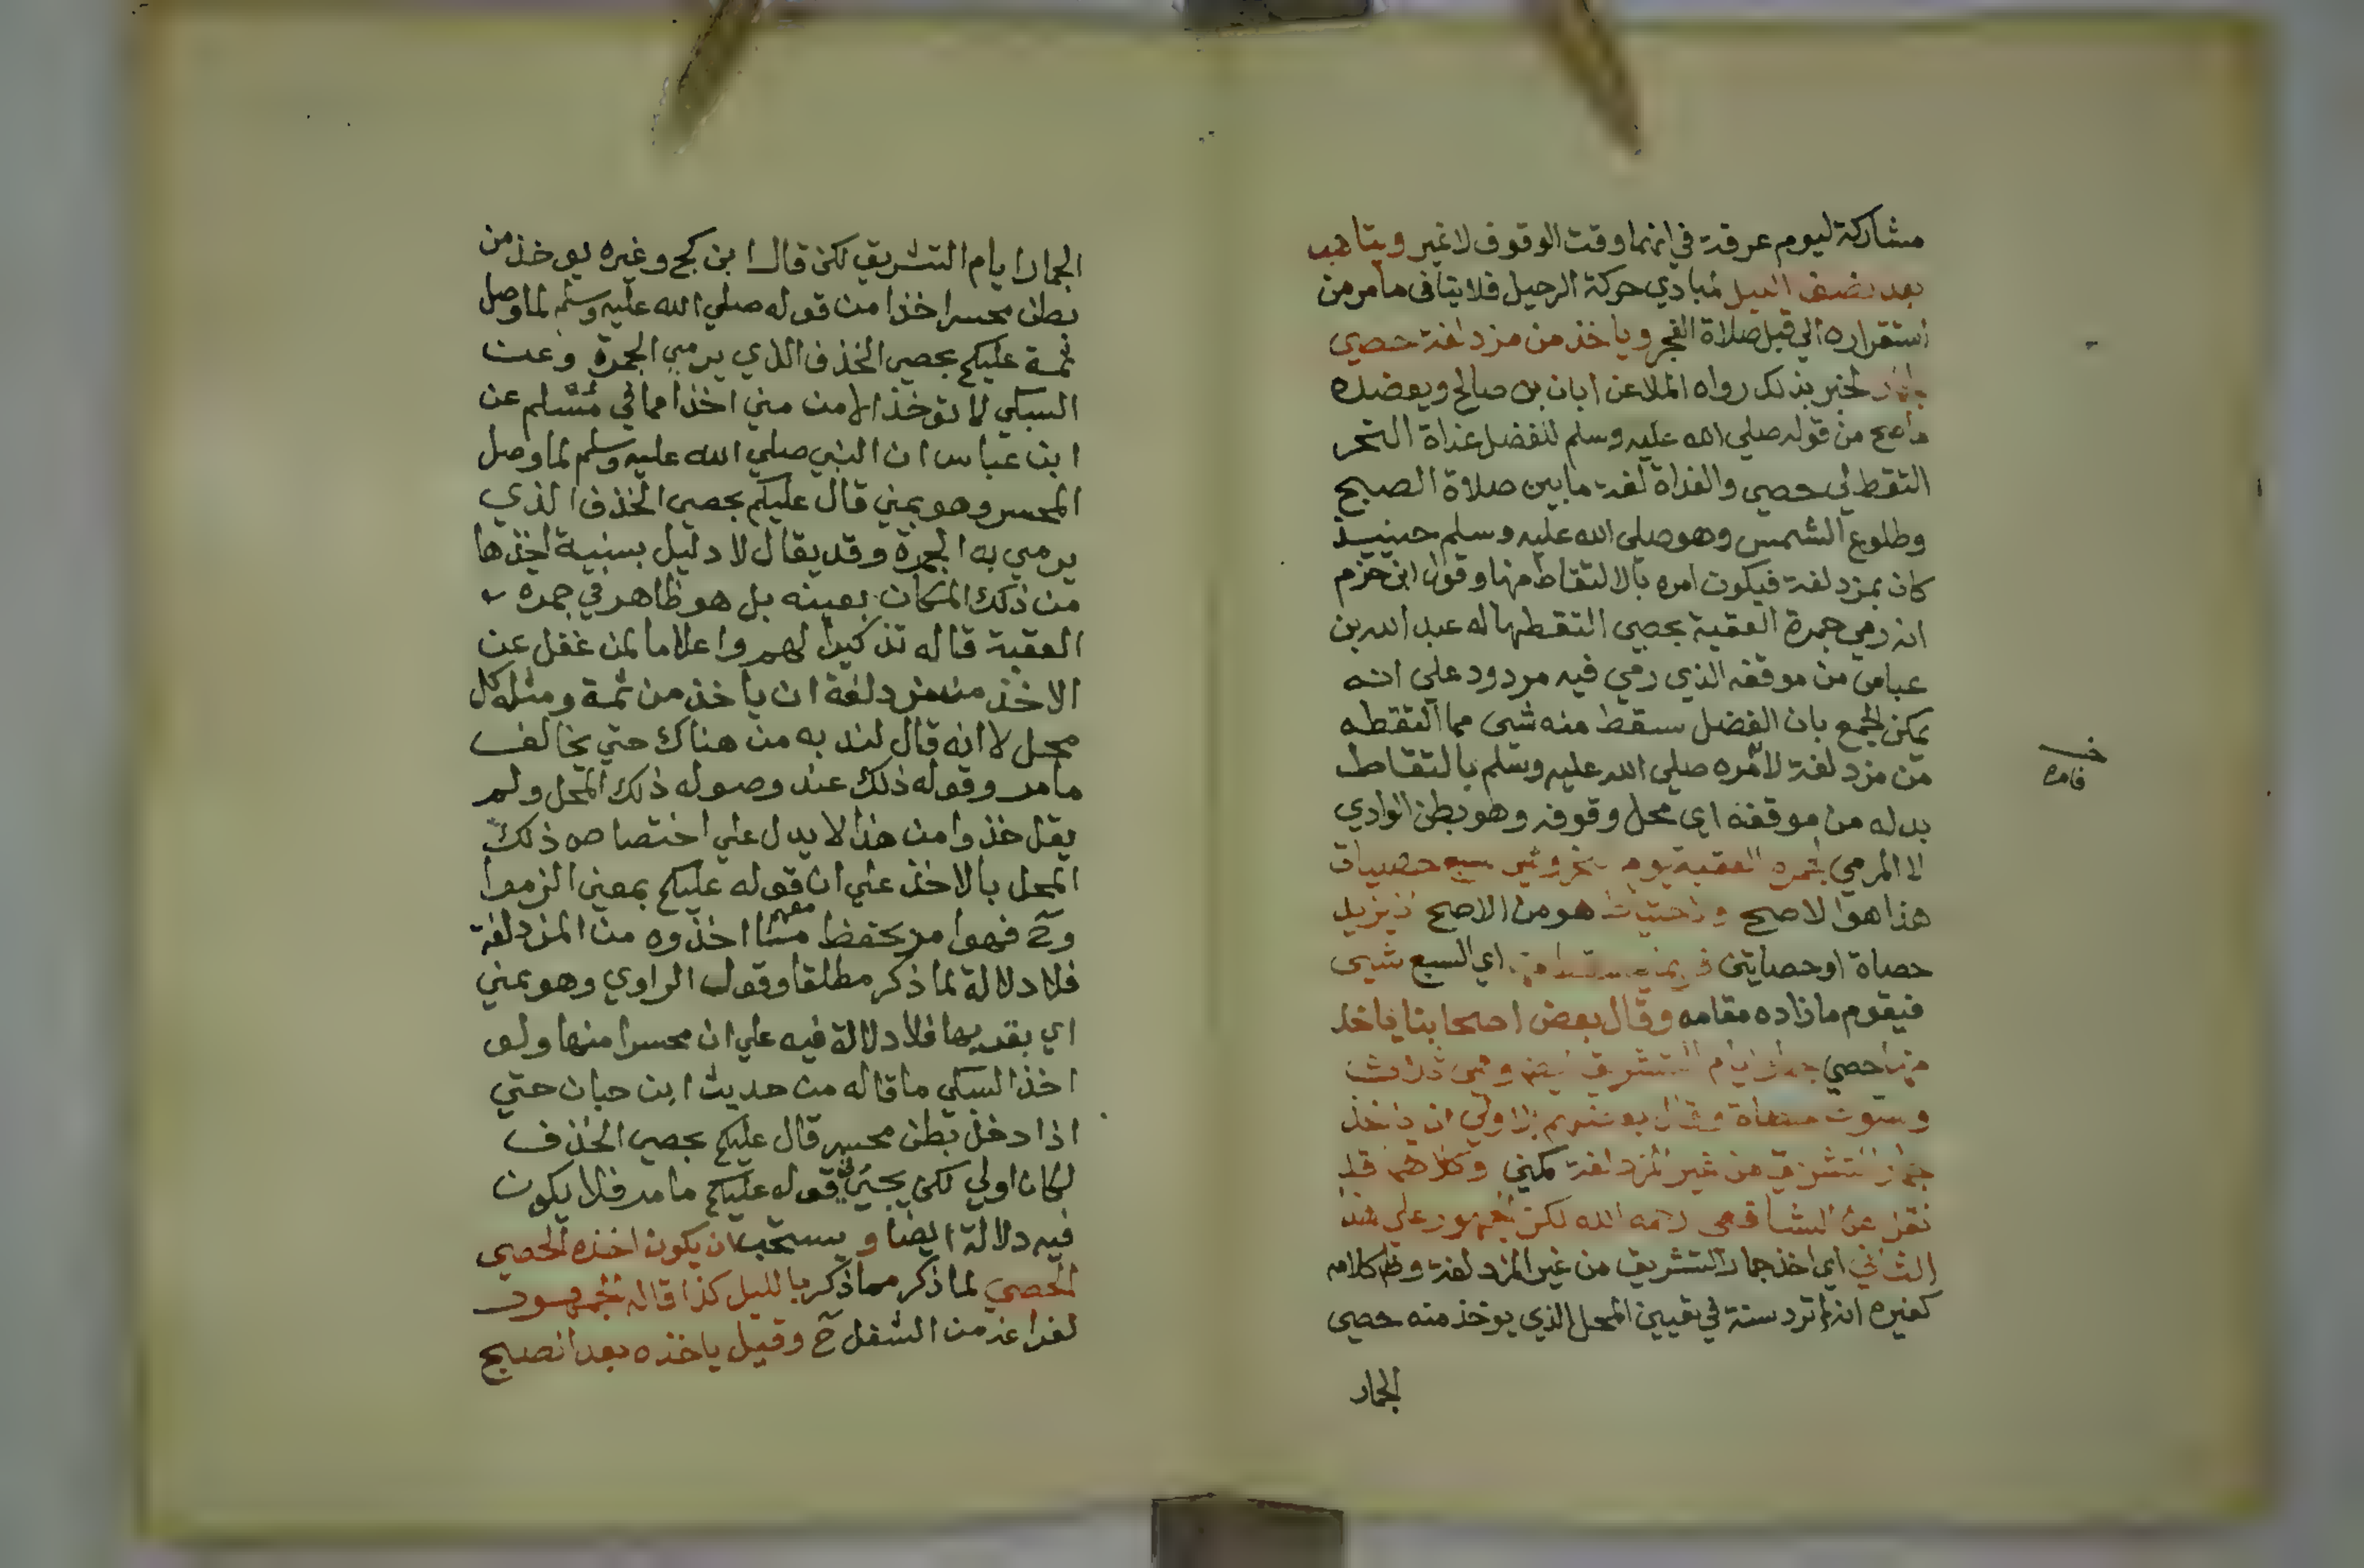 مشاركة ليوم عرفة في انما وقت الوقوف لا غير ويتاهب
بعد نصف الليل لمبادي حركة الرحيل فلا ينافى ما مر من
استقراره الي قبل صلاة الفجر وياخذ من مزدلفة حصي
لخبر بذلك رواه الملا عن ابان بن صالح ويعضده
ما صح من قوله صلي الله عليه وسلم للفضل غداة النحر
التقط لي حصي والغداة لغة ما بين صلاة الصبح
وطلوع الشمس وهو صلى الله عليه وسلم حينيذ
كان بمزدلفة فيكون امره بالالتقاط منها وقول ابن حزم
انه رمي جمرة العقبة بحصي التقطها له عبد الله بن
عباس من موقفه الذي رمي فيه مردود علي انه
يمكن الجمع بان الفضل سقط منه شى مما التقطه
من مزدلفة لأمره صلى الله عليه وسلم بالتقاط
بدله من موقفه اي محل وقوفه وهو بطن الوادي
لا المرمي جمره العقبة يوم النحر وهي سبع حصيات
هذا هو الاصح والاحتياط هو من الاصح ان يزيد
حصاة او حصايتن اي السبع شيى
فيقوم ما زاده مقامه وقال بعض اصحابنا ياخذ
منها حصي جمار ايام التشريق ايضا وهى ثلاث
وستون حصاة وقال بعضهم الاولي ان ياخذ
جمار التشريق من غير المزدلفة كمني وكلاهما قد
نقل عن الشافعى رحمه الله لكن الجمهور علي هذا
الثاني اي اخذ جمار التشريق من غير المزدلفة وظ كلامه
كغيره انه لم ترد سنة في تعيين المحل الذي يوخذ منه حصي
الجمار
فامره
الجمار ايام التشريق لكن قال ابن كج وغيره يوخذ من
بطن محسر اخذا من قوله صلي الله عليه وسلم لما وصل
ثمة عليكم بحصي الخذف الذي يرمي الجمرة وعن
السبكي لا توخذ الا من مني اخذا مما في مسلم عن
ابن عباس ان النبي صلي الله عليه وسلم لما وصل
المحسر وهو بمني قال عليكم بحصي الخذف الذي
يرمي به الجمرة وقد يقال لا دليل بسنية اخذها
من ذلك المكان بعينه بل هو ظاهر في جمره
العقبة قاله تذكيرا لهم واعلاما لمن غفل عن
الاخذ من مزدلفة ان ياخذ من ثمة ومثله كل
محل لا انه قال لند به من هناك حتي يخالف
ما مر وقوله ذلك عند وصوله ذلك المحل ولم
يقل خذوا من هذا لا يدل علي اختصاص ذلك
المحل بالاخذ علي ان قوله عليكم بمعني الزموا
وح فهو امر بحفظ ما معهم مما اخذوه من المزدلفة
فلا دلالة لما ذكر مطلقا وقول الراوي وهو بمني
اي بقربها فلا دلالة فيه علي ان محسرا منها ولو
اخذ السبكي ما قاله من حديث ابن حبان حتي
اذا دخل بطن محسر قال عليكم بحصي الخذف
لكان اولي لكن يجيي في قوله عليكم ما مر فلا يكون
فيه دلالة ايضا و يستحب ان يكون اخذه الحصي
الحصي لما ذكر مما ذكر بالليل كذا قاله الجمهور
لفراغه من الشغل ح وقيل ياخذه بعد الصبح